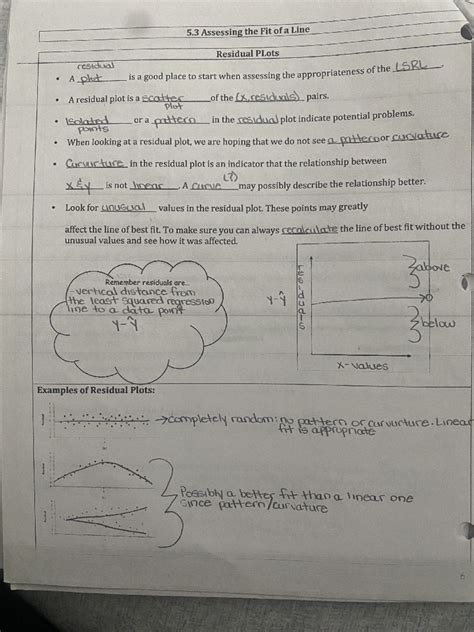 5.3 Assessing the Fit of a Line
Residual PLots
residual
• A plot is a good place to start when assessing the appropriateness of the LSRL.
• A residual plot is a scatter plot of the (x, residuals) pairs.
• Isolated points or a pattern in the residual plot indicate potential problems.
• When looking at a residual plot, we are hoping that we do not see a pattern or curvature
• Curvurture in the residual plot is an indicator that the relationship between
x & y is not linear. A curve (?) may possibly describe the relationship better.
• Look for unusual values in the residual plot. These points may greatly
affect the line of best fit. To make sure you can always recalculate the line of best fit without the
unusual values and see how it was affected.
Remember residuals are...
-vertical distance from
the least squared regression
line to a data point
y-ŷ
y-ŷ
residuals
above
0
below
x-values
Examples of Residual Plots:
→completely random: no pattern or curvurture. Linear
fit is appropriate
Possibly a better fit than a linear one
since pattern/curvature